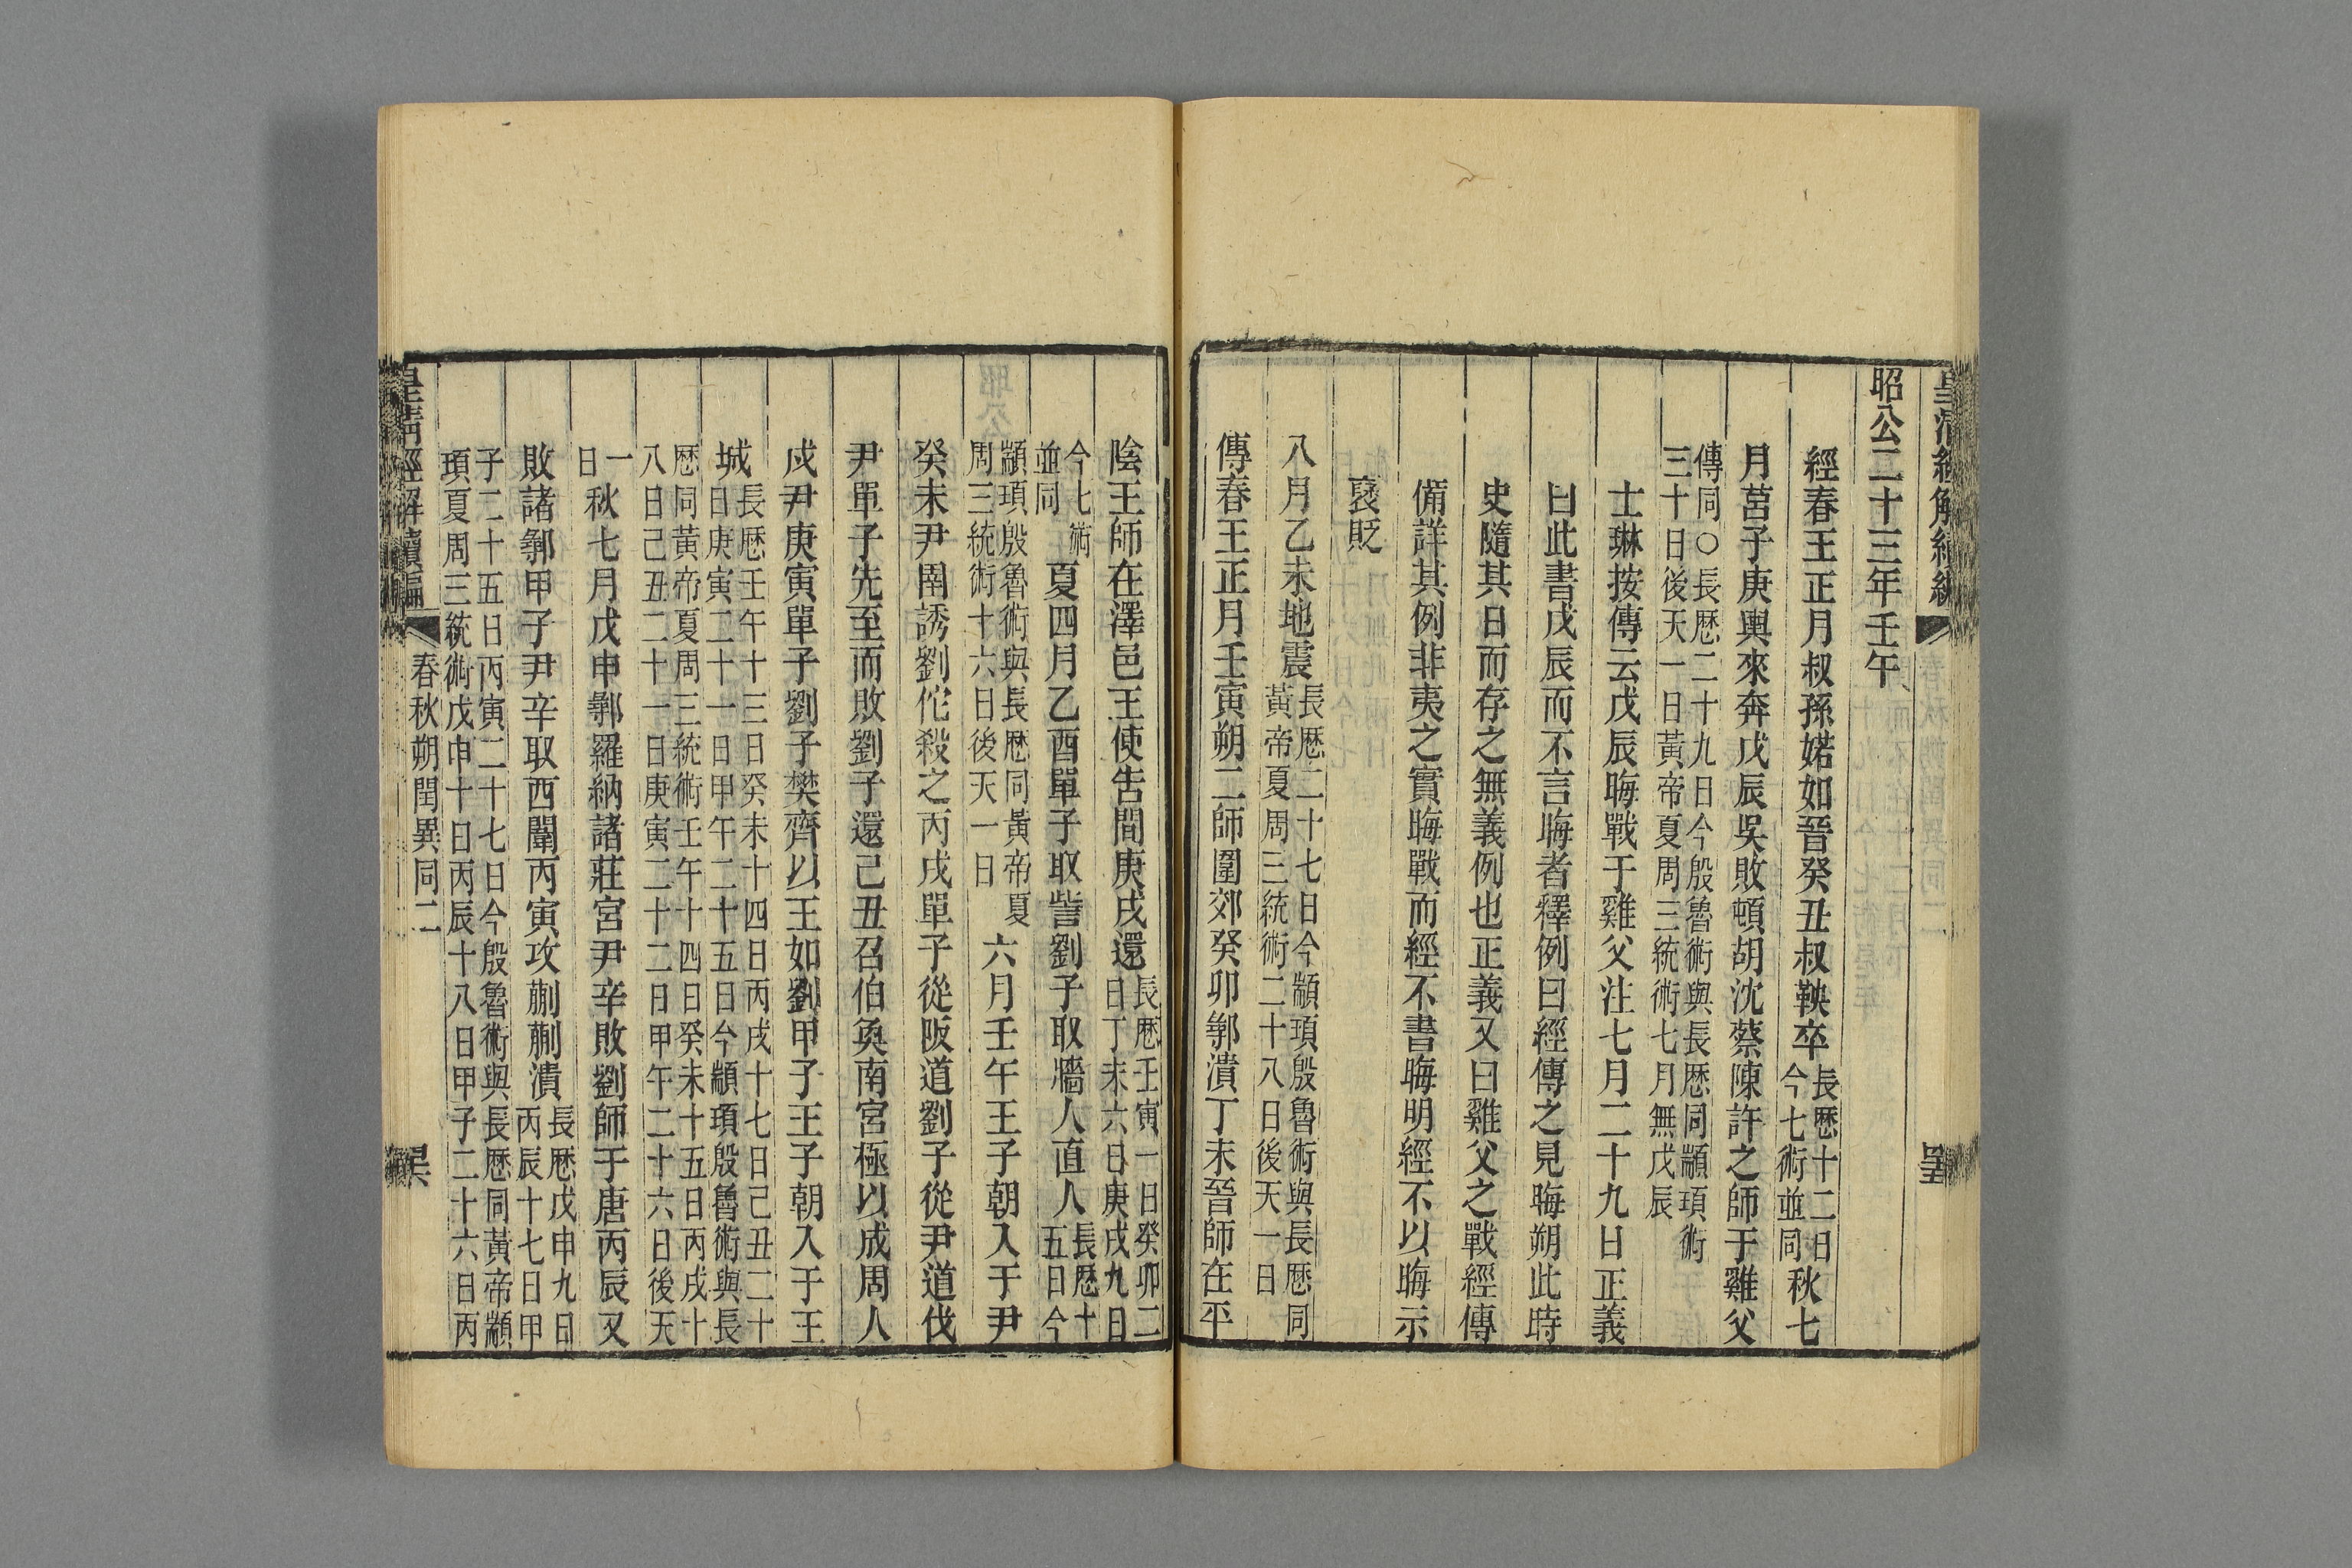 皇清經解續編
昭公二十三年壬午
經春王正月叔孫婼如晉癸丑叔鞅卒長厯十二日今七術並同秋七
月莒子庚輿來奔戊辰吳敗頓胡沈蔡陳許之師于雞父
傳同○長厯二十九日今殷魯術與長厯同顓頊術三十日後天一日黃帝夏周三統術七月無戊辰
士琳按傳云戊辰晦戰于雞父注七月二十九日正義
曰此書戊辰而不言晦者釋例曰經傳之見晦朔此時
史隨其日而存之無義例也正義又曰雞父之戰經傳
備詳其例非夷之實晦戰而經不書晦明經不以晦示
襃貶
八月乙未地震長厯二十七日今顓頊殷魯術與長厯同黃帝夏周三統術二十八日後天一日
傳春王正月壬寅朔二師圍郊癸卯鄩潰丁未晉師在平
陰王師在澤邑王使告間庚戌還長厯壬寅一日癸卯二日丁未六日庚戌九日
今七術並同夏四月乙酉單子取訾劉子取牆人直人長厯十五日今
顓頊殷魯術與長厯同黃帝夏周三統術十六日後天一日六月壬午王子朝入于尹
癸未尹圉誘劉佗殺之丙戌單子從阪道劉子從尹道伐
尹單子先至而敗劉子還己丑召伯奐南宮極以成周人
戍尹庚寅單子劉子樊齊以王如劉甲子王子朝入于王
城長厯壬午十三日癸未十四日丙戌十七日己丑二十日庚寅二十一日甲午二十五日今顓頊殷魯術與長
厯同黃帝夏周三統術壬午十四日癸未十五日丙戌十八日己丑二十一日庚寅二十二日甲午二十六日後天
一日秋七月戊申鄩羅納諸莊宮尹辛敗劉師于唐丙辰又
敗諸鄩甲子尹辛取西闈丙寅攻蒯蒯潰長厯戊申九日丙辰十七日甲
子二十五日丙寅二十七日今殷魯術與長厯同黃帝顓頊夏周三統術戊申十日丙辰十八日甲子二十六日丙
皇清經解續編
春秋朔閏異同二